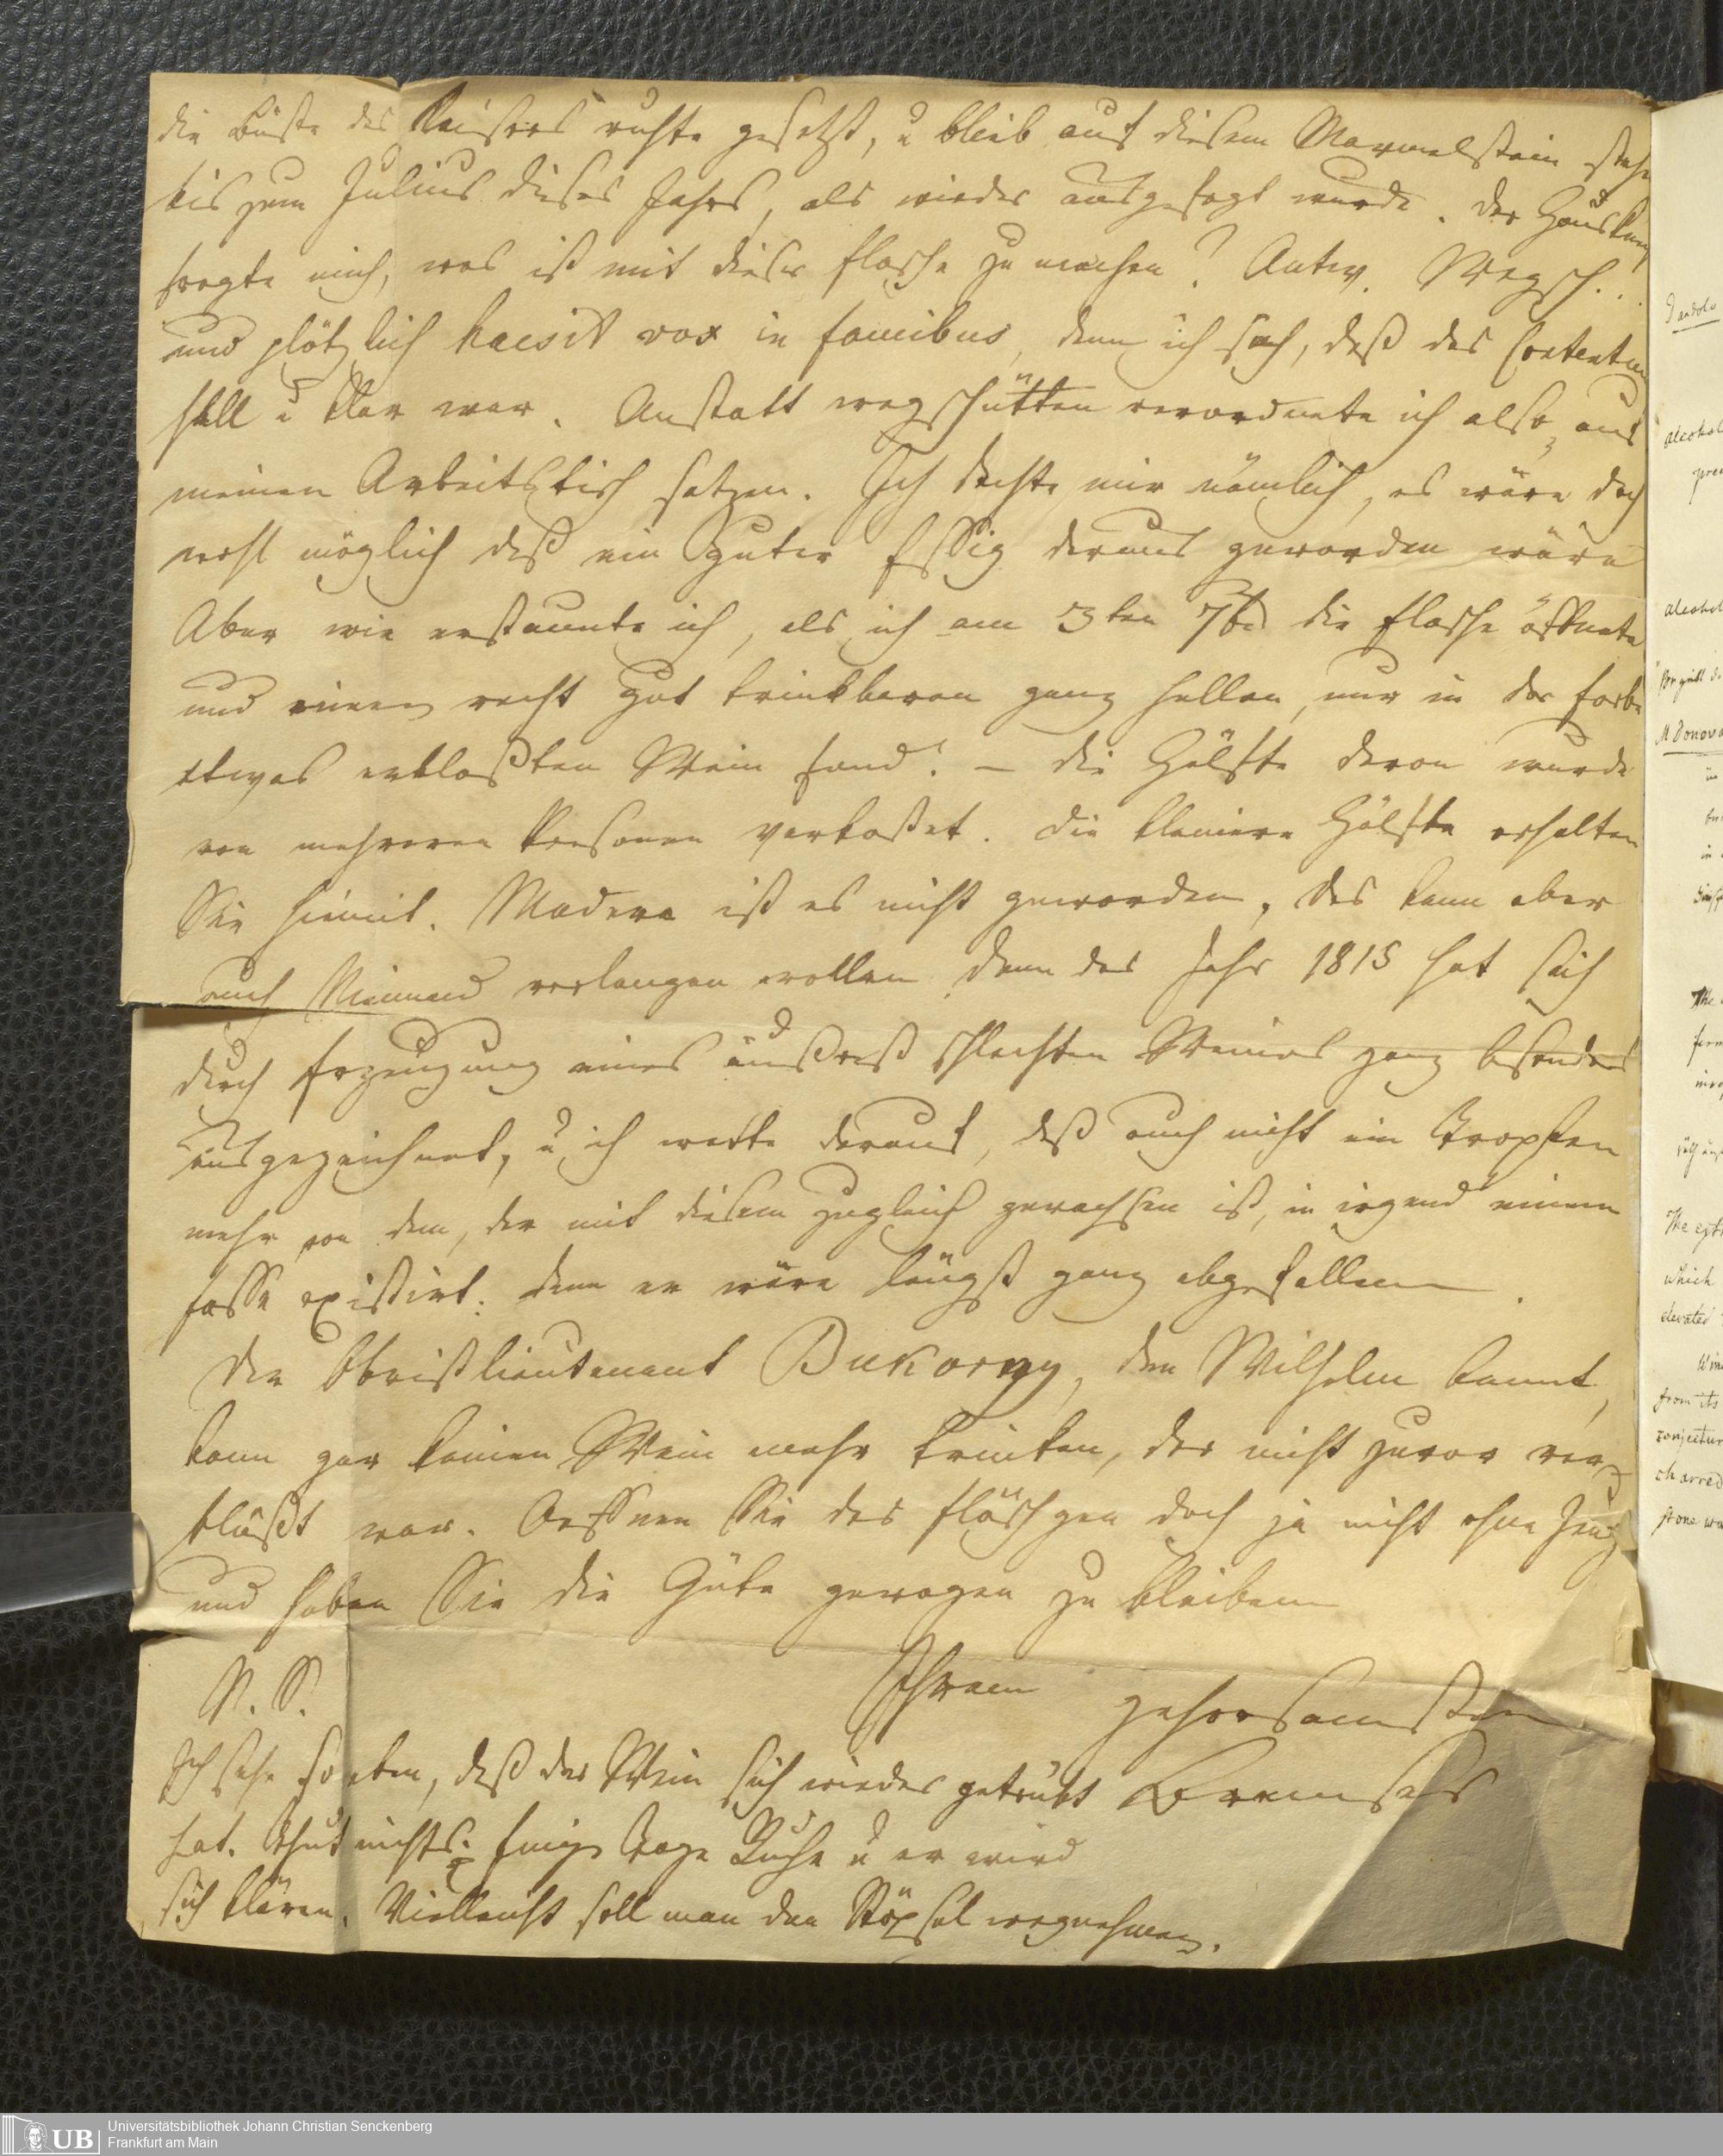 die Büste des Kaisers ruhte gesetzt, u blieb auf diesem Marmelstein stehn
bis zum Julius dieses Jahrs, als wieder ausgefegt wurde. Der Hausknecht
fragte mich, was ist mit dieser Flasche zu machen? Antw. Wegsch...
und plötzlich haesit vox in faucibus, denn ich sah, daß das Contentum
hell u klar war. Anstatt wegschütten verordnete ich also, auf
meinen Arbeitstisch setzen. Ich dachte mir nämlich, es wäre doch
wohl möglich daß ein guter Essig daraus geworden wäre
Aber wie erstaunte ich, als ich am 3ten 7br die Flasche öffnete
und einen recht gut trinkbaren ganz hellen, nur in der Farbe
etwas erblaßten Wein fand! – Die Hälfte davon wurde
von mehreren Personen verkostet. Die kleinere Hälfte erhalten
Sie hiemit. Madera ist es nicht geworden, das kann aber
auch Niemand verlangen wollen denn das Jahr 1815 hat sich
durch Erzeugung eines äußerst schlechten Weines ganz besonders
ausgezeichnet, u ich wette darauf, daß auch nicht ein Tropfen
mehr von dem, der mit diesem zugleich gewachsen ist, in irgend einem
Fasse existirt: denn er wäre längst ganz abgefallen.
Der Obristlieutenant Bukorny, den Wilhelm kennt,
kann gar keinen Wein mehr trinken, der nicht zuvor ver
blüßt war. Oeffnen Sie das Fläschgen doch ja nicht ohne Zeug
und haben Sie die Güte gewogen zu bleiben
Ihrem gehorsamsten
Bremser
N. S.
Ich sehe so eben, daß der Wein sich wieder getrübt
hat. Thut nichts: Einige Tage Ruhe u er wird
sich klären. Vielleicht soll man den Stöpsel wegnehmen.
Dandolo
alcohol
alcohol
M Donova
in
in
The
ferm
The extr
which
elevated
Win
from its
conjectur
charred
stone wa
UB
Universitätsbibliothek Johann Christian Senckenberg
Frankfurt am Main